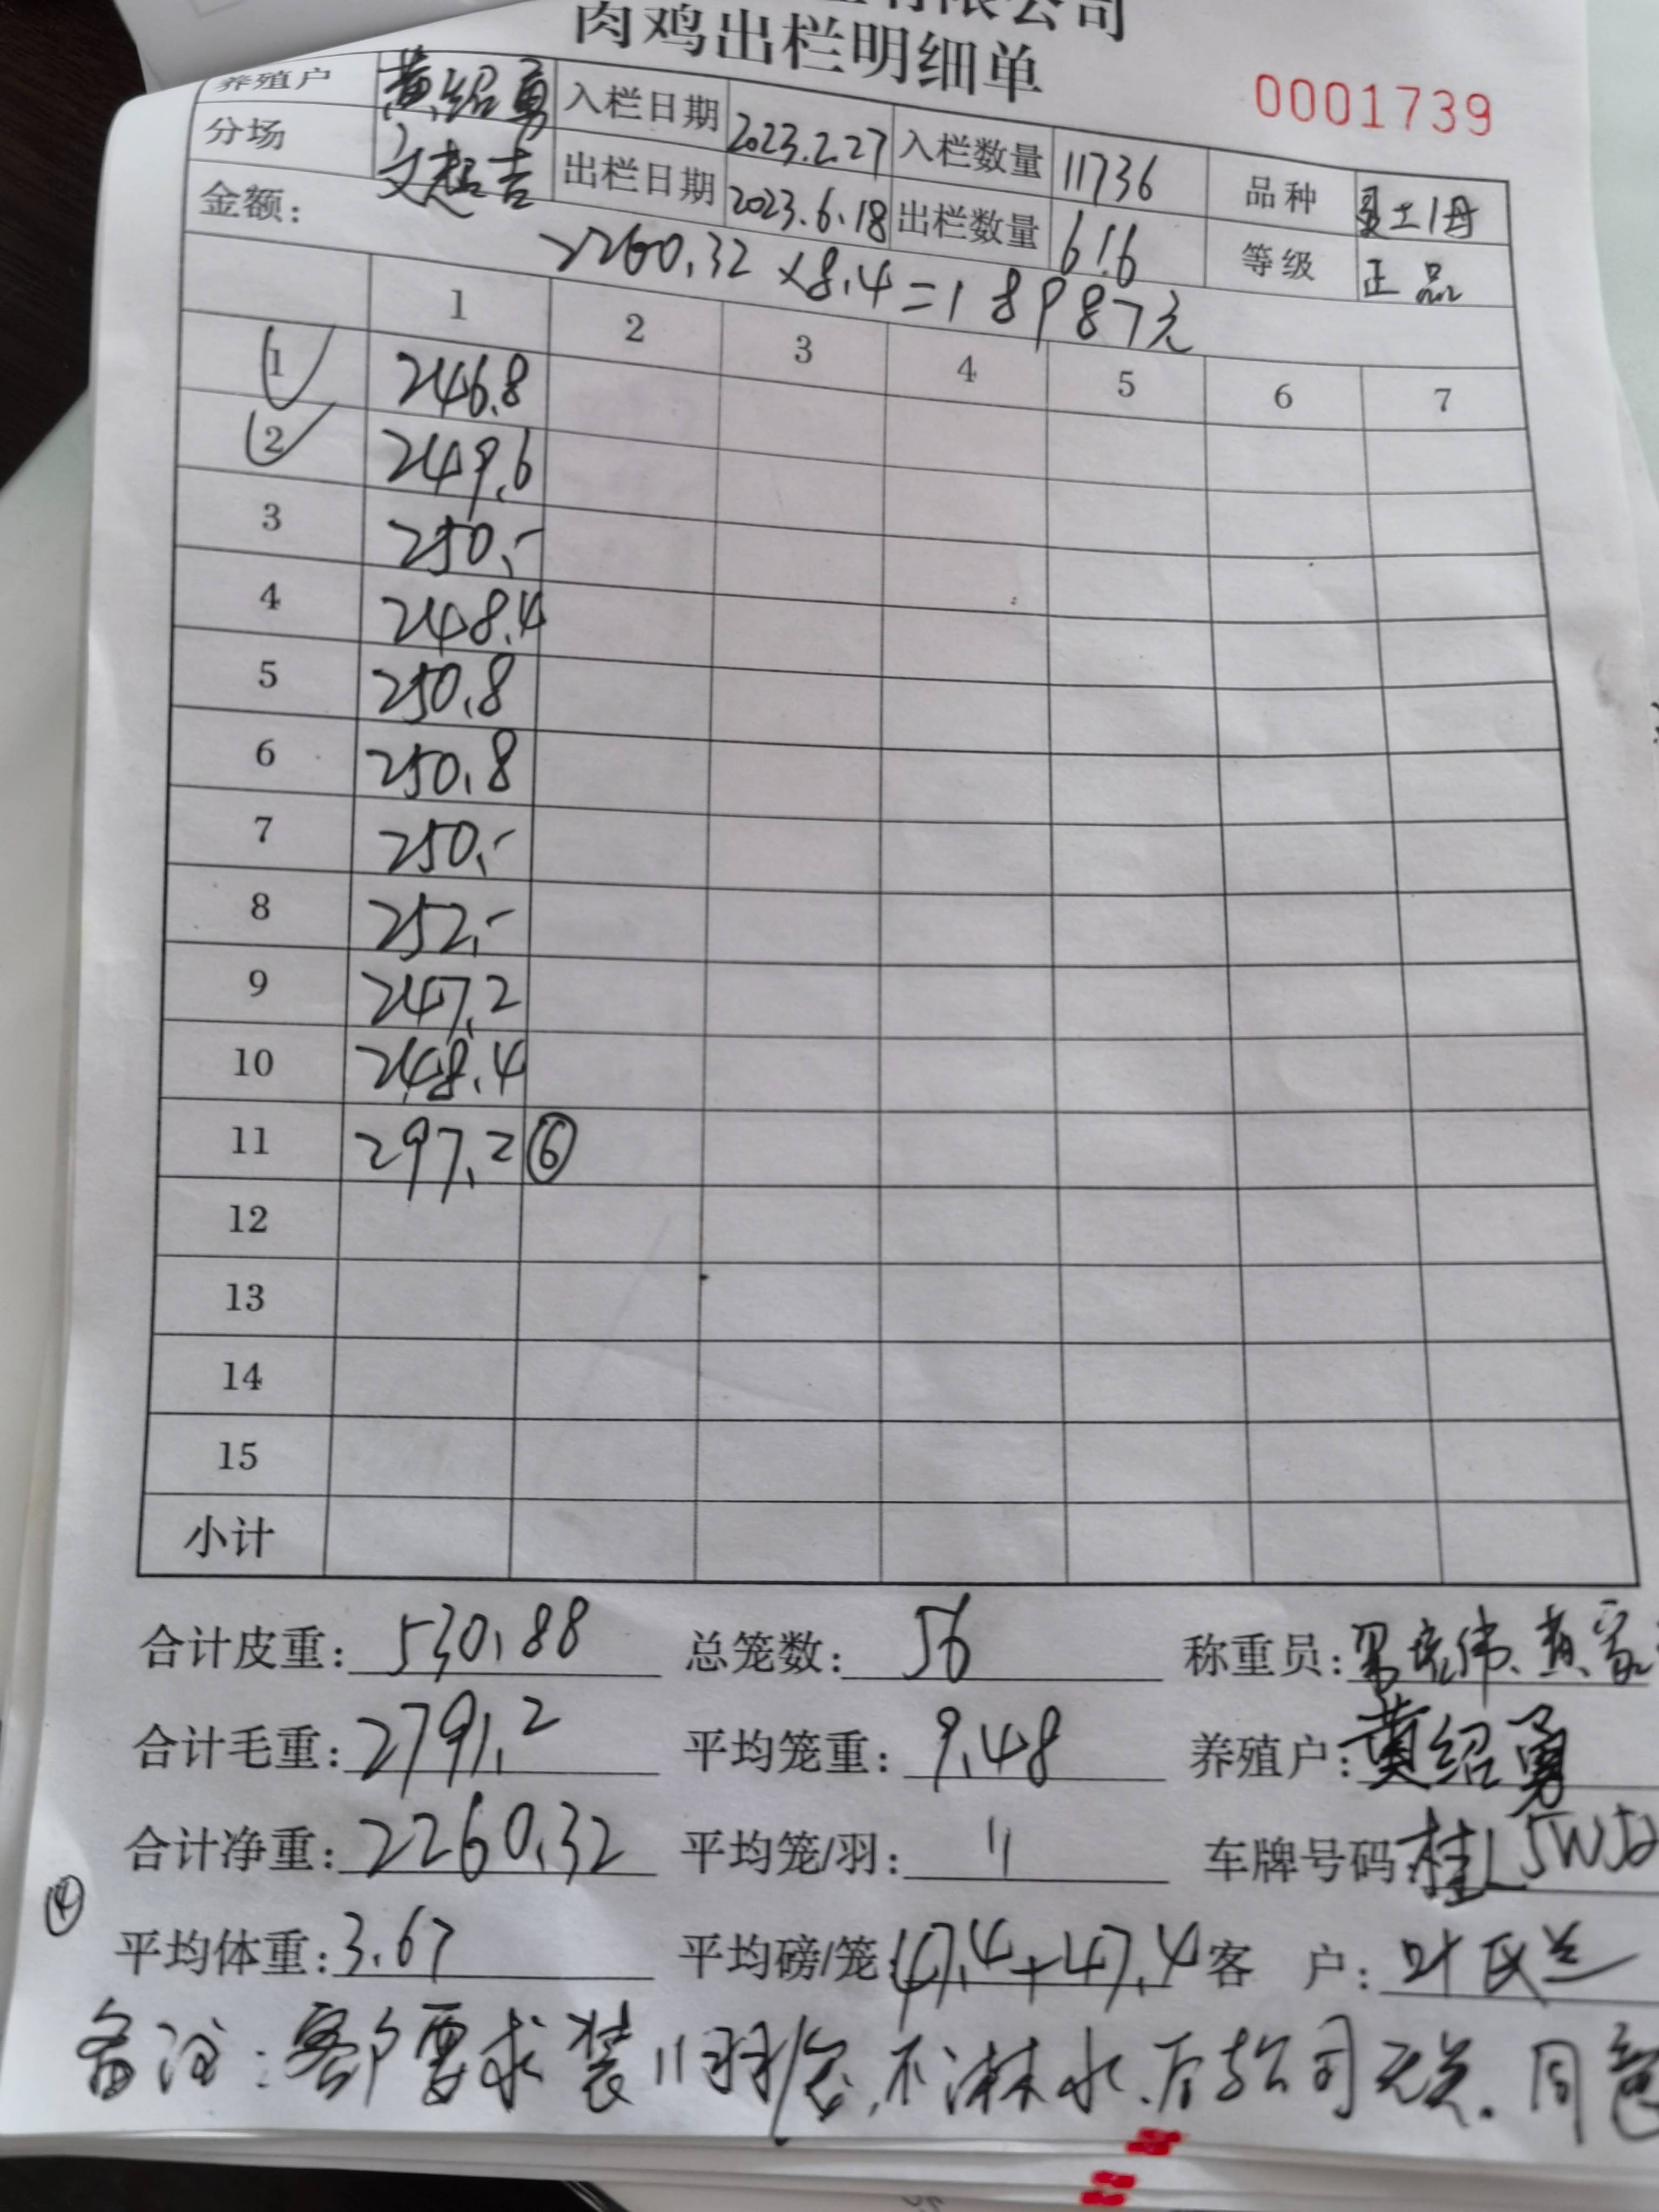 有限公司
肉鸡出栏明细单
0001739
养殖户 黄绍勇 入栏日期 2023.2.27 入栏数量 11736 品种 土1母
分场 文超吉 出栏日期 2023.6.18 出栏数量 616 等级 正品
金额: 2260.32×8.4=18987元
1 2 3 4 5 6 7
1 246.8
2 249.6
3 250.-
4 248.4
5 250.8
6 250.8
7 250.-
8 252.-
9 247.2
10 248.4
11 297.2 ⑥
12
13
14
15
小计
合计皮重: 530.88 总笼数: 56 称重员:
合计毛重: 2791.2 平均笼重: 9.48 养殖户: 黄绍勇
合计净重: 2260.32 平均笼/羽: 11 车牌号码: 桂L5W52
④
平均体重: 3.67 平均磅/笼: 47.4+47.4 客 户: 叶氏兰
备注: 客户要求装11羽/笼,不淋水.后公司无关.同意